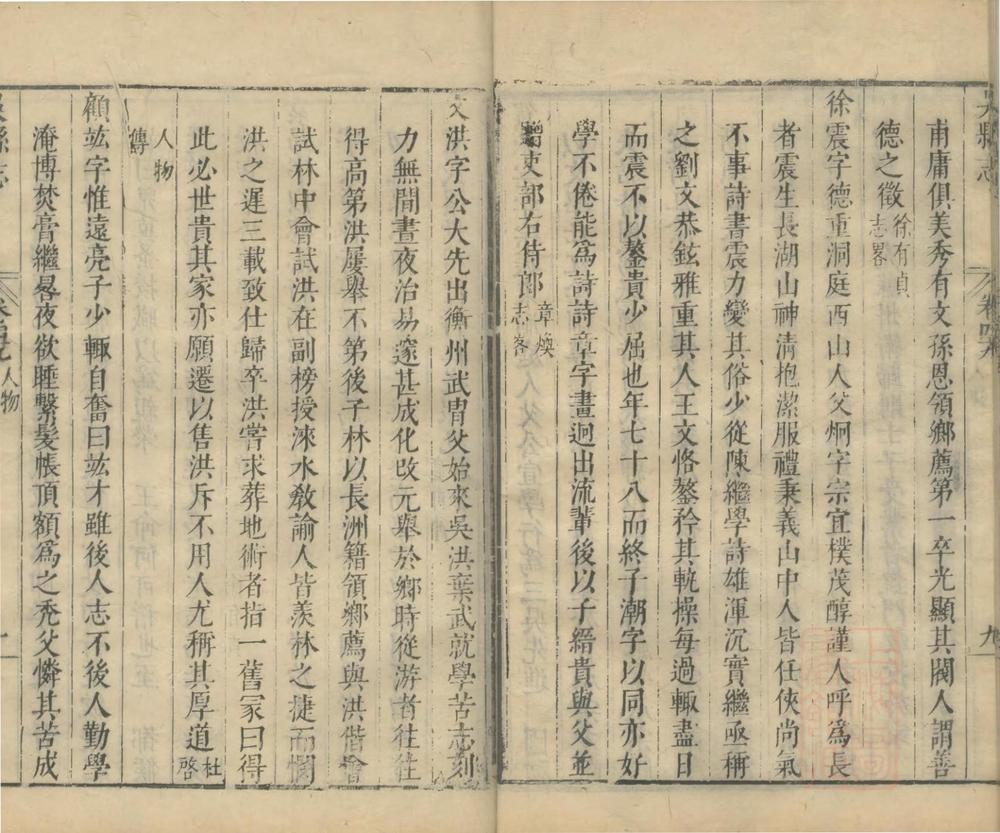 吳縣志
卷四九
九
甫庸俱美秀有文孫恩領鄉薦第一卒光顯其閥人謂善
德之徵徐有貞志畧
徐震字德重洞庭西山人父炯字宗宜樸茂醇謹人呼爲長
者震生長湖山神清抱潔服禮秉義山中人皆任俠尚氣
不事詩書震力變其俗少從陳繼學詩雄渾沉實繼亟稱
之劉文恭鉉雅重其人王文恪鏊矜其軌操每過輒盡日
而震不以鏊貴少屈也年七十八而終子潮字以同亦好
學不倦能爲詩詩章字畫迥出流輩後以子縉貴與父並
贈吏部右侍郎章煥志畧
文洪字公大先出衡州武胄父始來吳洪棄武就學苦志刻
力無間晝夜治易邃甚成化改元舉於鄉時從游者往往
得高第洪屢舉不第後子林以長洲籍領鄉薦與洪偕會
試林中會試洪在副榜授淶水敎諭人皆羨林之捷而憫
洪之遲三載致仕歸卒洪嘗求葬地術者指一舊冢曰得
此必世貴其家亦願遷以售洪斥不用人尤稱其厚道杜啓
人物傳
顧竑字惟遠亮子少輒自奮曰竑才雖後人志不後人勤學
淹博焚膏繼晷夜欲睡繫髮帳頂額爲之禿父憐其苦成
吳縣志
卷四九
人物